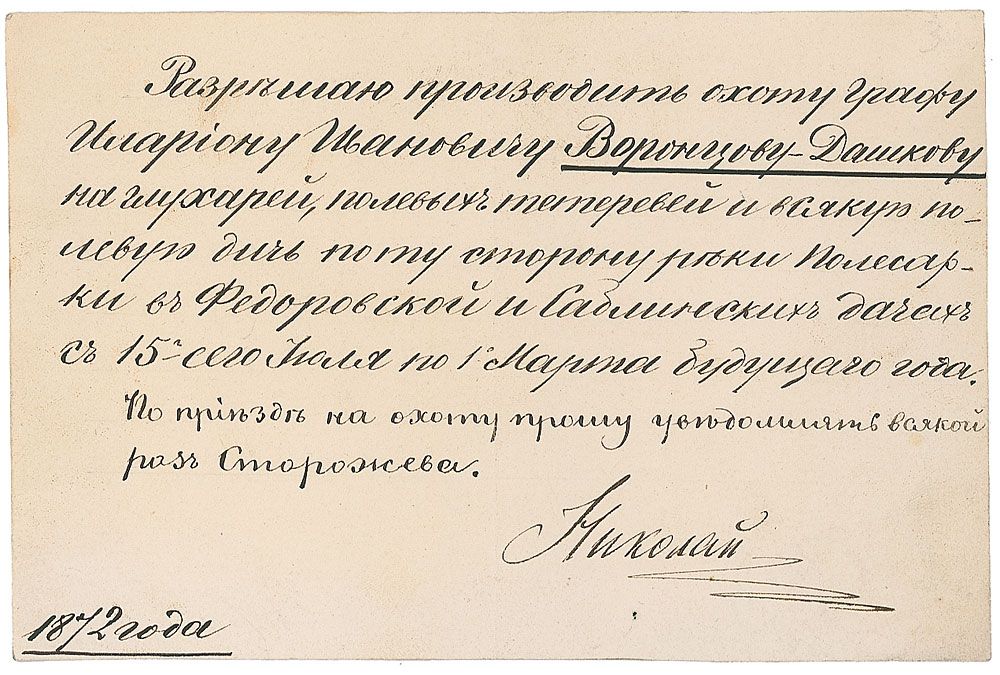 Разрѣшаю производить охоту Графу
Иларіону Ивановичу Воронцову-Дашкову
на глухарей, полевыхъ тетеревей и всякую по-
левую дичь по ту сторону рѣки Полесар-
ки въ Федоровской и Саблинскихъ дачахъ
съ 15го сего Іюля по 1е Марта будущаго года.
По пріѣздѣ на охоту прошу увѣдомлять всякой
разъ Сторожева.
Николай
1872 года